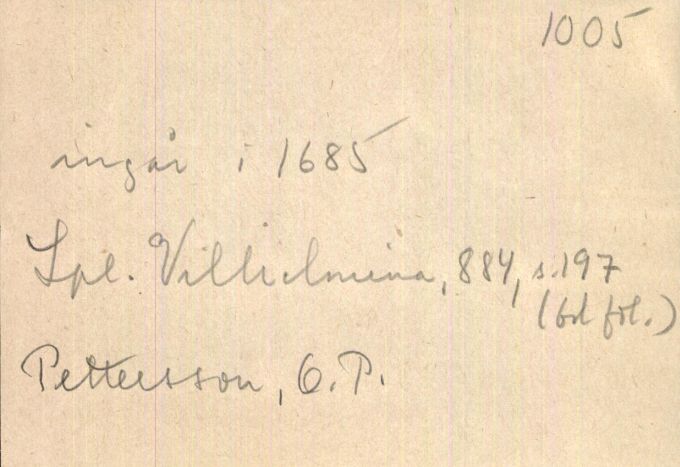 1005
ingår i 1685
Lpl. Vilhelmina, 884, s. 197
(bd föl.)
Pettersson, O.P.